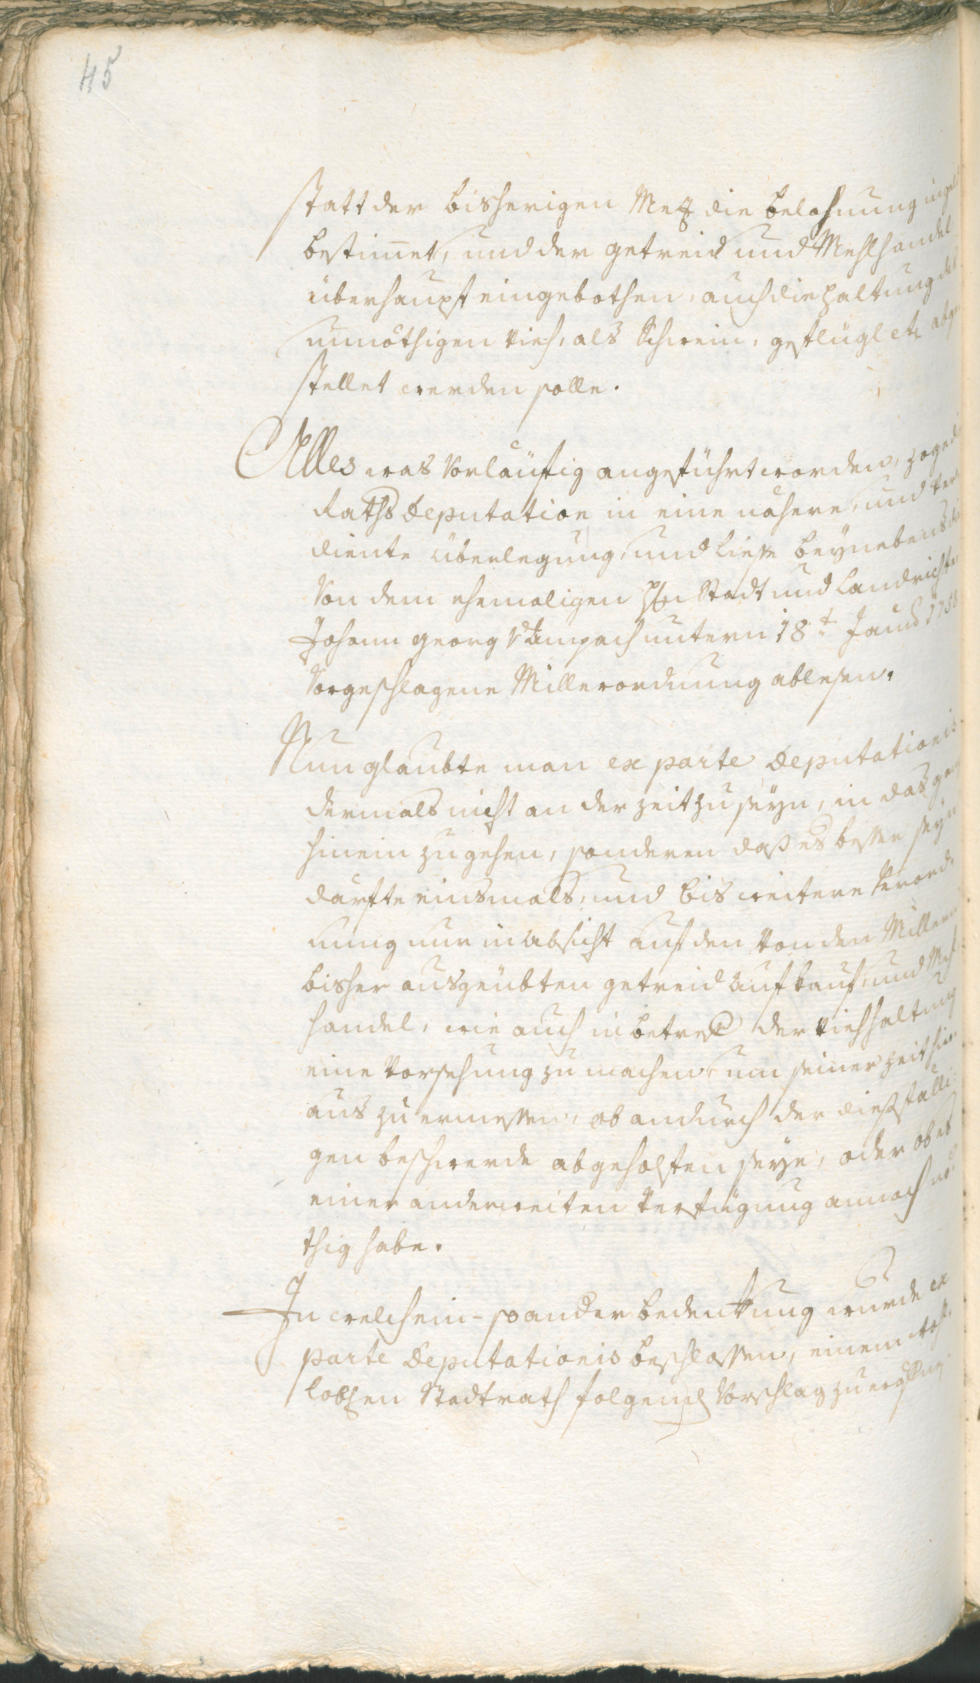 45
statt der bisherigen Metz die belohnung in
bestim̅et, und der getreid und Mehlhandel
überhaupt eingebothen, auch die haltung des
unnöthigen Viech, als Schwein, geflügl etc abge
stellet werden solle.
Alles was Vorläufig angeführt worden, zoge
Raths Deputation in eine nähere, und ver
diente überlegung, und liesse beynebens
Von dem ehemaligen Hn Stadt und Landrichter
Johann Georg untern 18t
Vorgeschlagene Millerordnung ablesen.
Nun glaubte man ex parte Deputationis
dermals nicht an der zeit zu seyn, in das
hinein zu gehen, sonderen dass es besser seyn
därfte einsmals, und bis weitere Verord
nung nur in absicht auf den Von den Millern
bisher ausgeübten getreid aufkauf, und Mehl
handel, wie auch in betref der Viehhaltung
eine Vorsehung zu machen, um seiner zeit hier
aus zu ermessen, ob andurch der diessfälli
gen beschwerde abgeholfen seye, oder ob es
einer anderweiten Verfügung annoch nö
thig habe.
In welch ein- so ander bedenkung wurde ex
parte Deputationis beschlossen, einem
löblen Stadtrath folgend Vorschlag zu